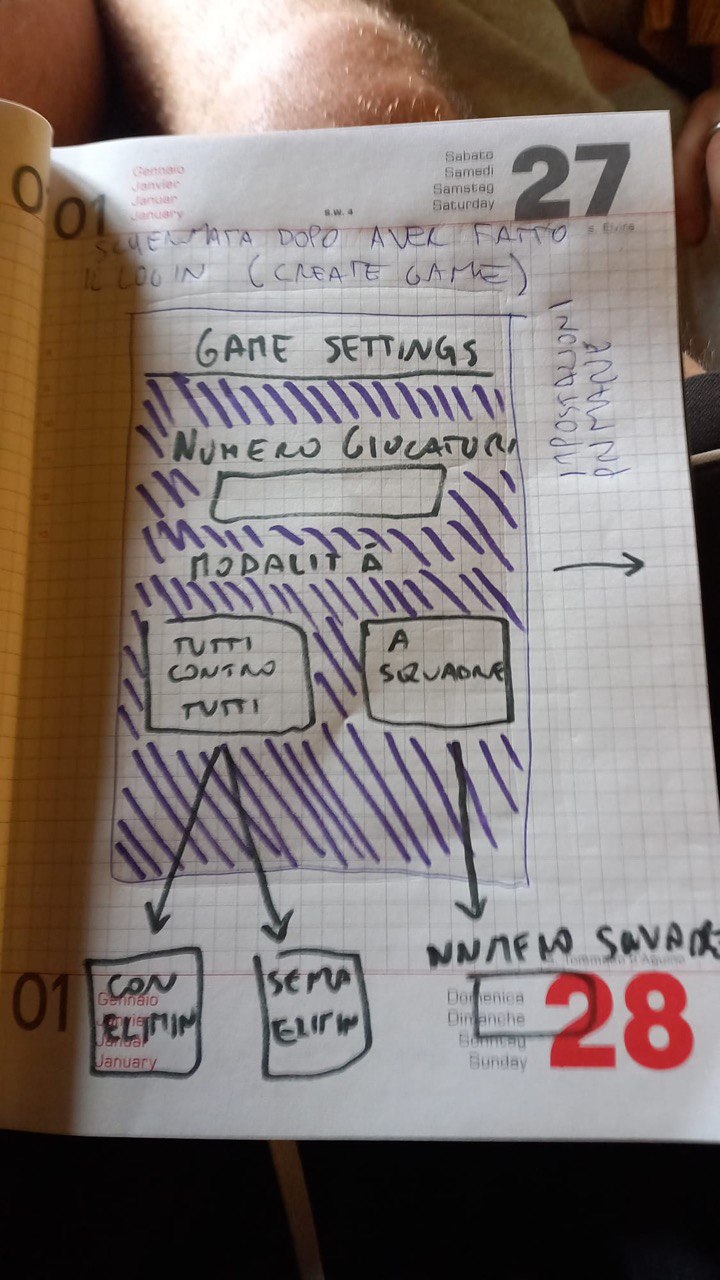 01
Gennaio
Janvier
Januar
January
S.W. 4
Sabato
Samedi
Samstag
Saturday
27
s. Elvira
SCHERMATA DOPO AVER FATTO
IL LOGIN (CREATE GAME)
GAME SETTINGS
NUMERO GIOCATORI
MODALITÀ
TUTTI
CONTRO
TUTTI
A
SQUADRE
IMPOSTAZIONI
PRIMARIE
CON
ELIMIN
SENZA
ELIMIN
NNMERO SQUADRE
01
Gennaio
Janvier
Januar
January
Domenica
Dimanche
Sonntag
Sunday
28